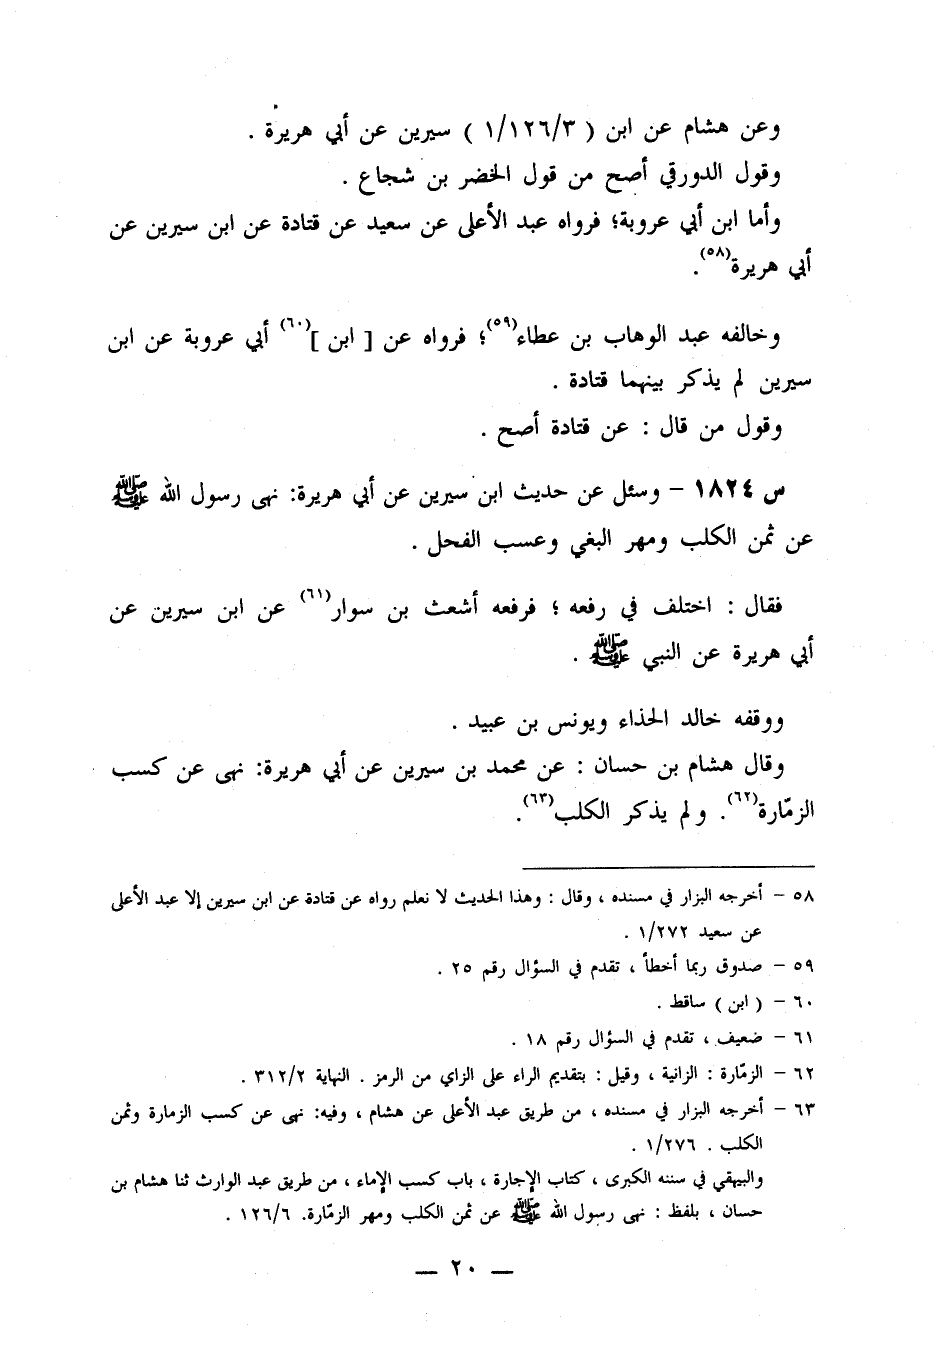 وعن هشام عن ابن ( ١/١٢٦/٣ ) سيرين عن أبي هريرة .
وقول الدورقي أصح من قول الخضر بن شجاع .
وأما ابن أبي عروبة؛ فرواه عبد الأعلى عن سعيد عن قتادة عن ابن سيرين عن
أبي هريرة(٥٨).
وخالفه عبد الوهاب بن عطاء(٥٩)؛ فرواه عن [ ابن ](٦٠) أبي عروبة عن ابن
سيرين لم يذكر بينهما قتادة .
وقول من قال : عن قتادة أصح .
س ١٨٢٤ - وسئل عن حديث ابن سيرين عن أبي هريرة: نهى رسول الله ﷺ
عن ثمن الكلب ومهر البغي وعسب الفحل .
فقال : اختلف في رفعه ؛ فرفعه أشعث بن سوار(٦١) عن ابن سيرين عن
أبي هريرة عن النبي ﷺ .
ووقفه خالد الحذاء ويونس بن عبيد .
وقال هشام بن حسان : عن محمد بن سيرين عن أبي هريرة: نهى عن كسب
الزمّارة(٦٢). ولم يذكر الكلب(٦٣).
٥٨ - أخرجه البزار في مسنده ، وقال : وهذا الحديث لا نعلم رواه عن قتادة عن ابن سيرين إلا عبد الأعلى
عن سعيد ١/٢٧٢ .
٥٩ - صدوق ربما أخطأ ، تقدم في السؤال رقم ٢٥ .
٦٠ - ( ابن ) ساقط .
٦١ - ضعيف ، تقدم في السؤال رقم ١٨ .
٦٢ - الزمّارة : الزانية ، وقيل : بتقديم الراء على الزاي من الرمز . النهاية ٣١٢/٢ .
٦٣ - أخرجه البزار في مسنده ، من طريق عبد الأعلى عن هشام ، وفيه: نهى عن كسب الزمارة وثمن
الكلب . ١/٢٧٦ .
والبيهقي في سننه الكبرى ، كتاب الإجارة ، باب كسب الإماء ، من طريق عبد الوارث ثنا هشام بن
حسان ، بلفظ : نهى رسول الله ﷺ عن ثمن الكلب ومهر الزمّارة. ١٢٦/٦ .
— ٢٠ —